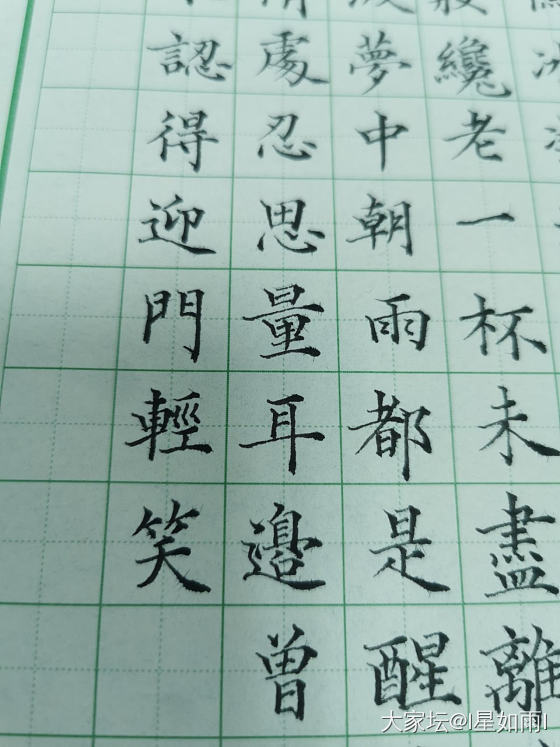 纔老一杯未盡離
夢中朝雨都是醒
處忍思量耳邊曾
認得迎門輕笑
大家坛@I星如雨I